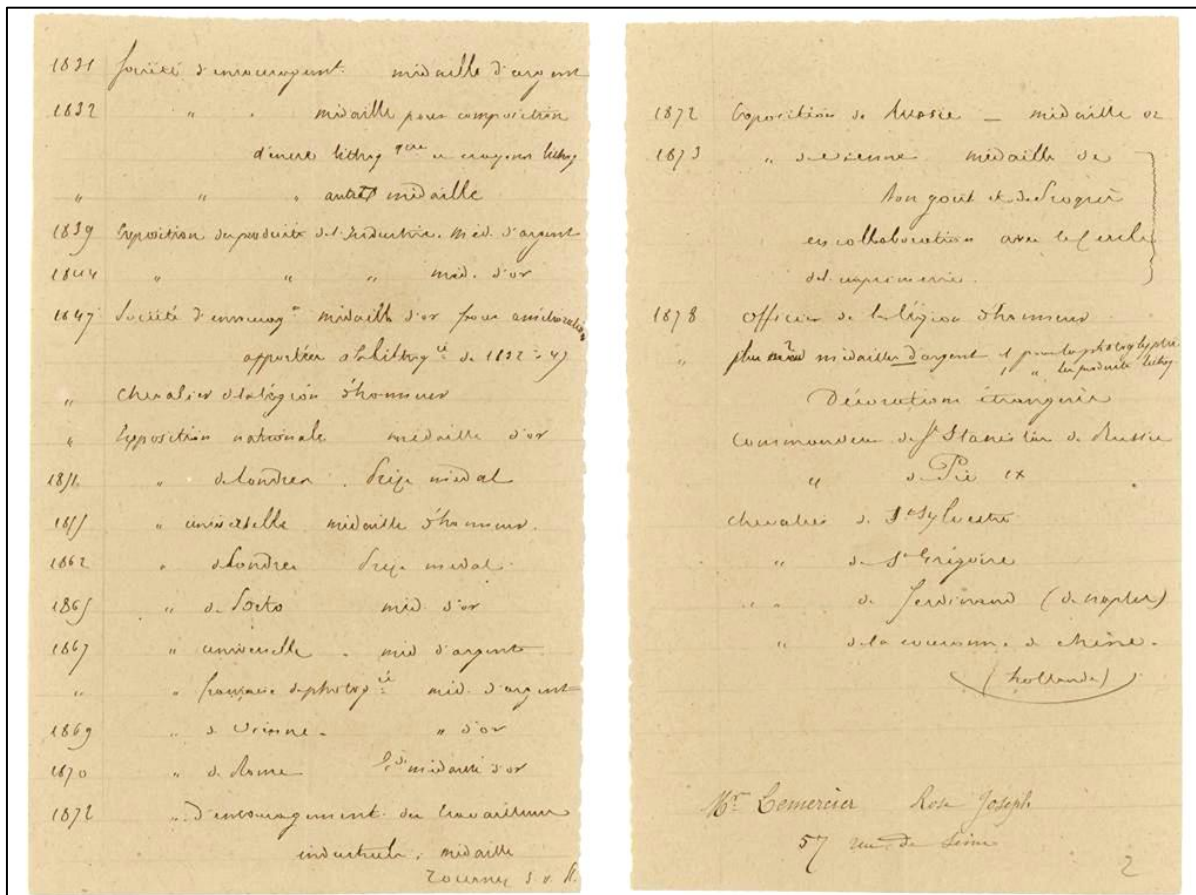 1831 Société d'encouragent. médaille d'argent
1832 " " médaille pour composition
d'encre lithog que et crayons lithog
" " " autre médaille
1839 Exposition des produits de l'Industrie. Méd. d'argent
1844 " " " méd. d'or
1847 Société d'encourag t médaille d'or pour amélioration
apportées à la lithog ie de 1832 à 47
" Chevalier de la légion d'honneur
" Exposition nationale médaille d'or
1851 " de Londres. Prize medal
1855 " universelle médaille d'honneur.
1862 " de Londres Prize medal.
1865 " de Porto méd. d'or
1867 " universelle. méd d'argent.
" " française de photog ie méd. d'argent
1869 " de Vienne. " d'or
1870 " de Rome Gde médaille d'or
1872 " d'encouragement des travailleurs
industriels. médaille
Tournez s. v. p.
1872 Exposition de Russie — médaille or
1873 " de Vienne médaille de
bon goût et de Progrès
en collaboration avec le Cercle
de l'imprimerie.
1878 Officier de la légion d'honneur
" plus médailles d'argent 1 pour la photoglyptie
1 " les produits lithog
Décorations étrangères
Commandeur de St Stanislas de Russie
" de Pie IX
Chevalier de St Sylvestre
" de St Grégoire
" " de Ferdinand (de naples)
" de la couronne de chêne.
(hollande)
Mr Lemercier Rose Joseph
57 rue de Seine
2